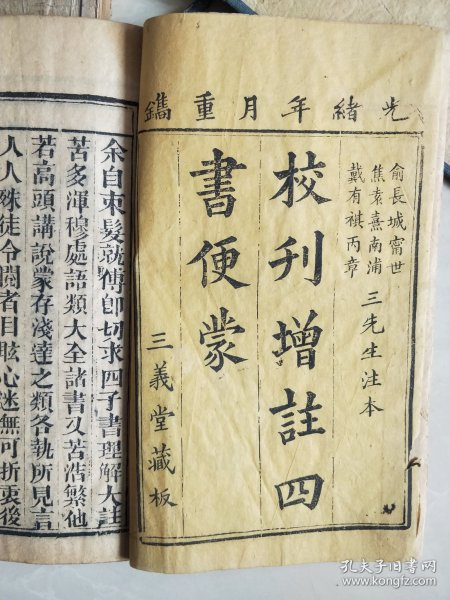 光緒年月重鐫
俞長城甯世
焦袁熹南浦
戴有祺丙章
三先生注本
校刊增註四
書便蒙
三義堂藏板
余自束髮就傅卽切求四子書理解大註
苦多渾穆處語類大全諸書又苦浩繁他
若高頭講說蒙存淺達之類各執所見言
人人殊徒令閱者目眩心迷無可折衷後
孔夫子旧书网
www.kongfz.com